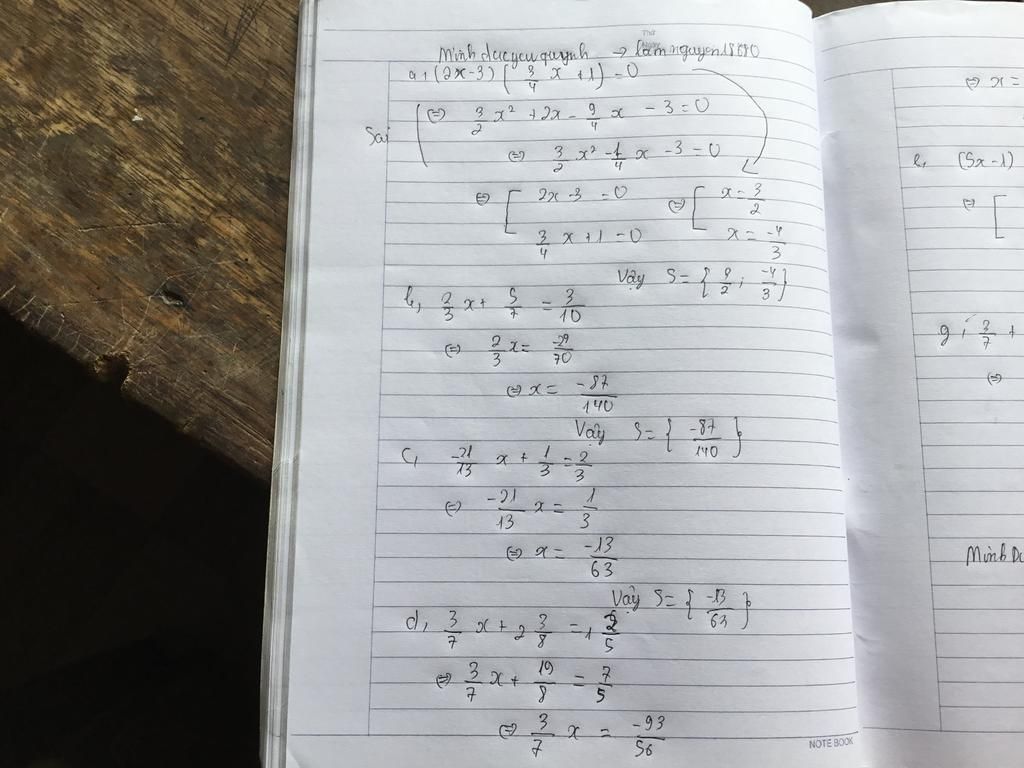 Minh duc yeu quynh → lam nguyen 18010
a, (2x-3) (3/4 x + 1) = 0
Sai
⇔ 3/2 x² + 2x - 9/4 x - 3 = 0
⇔ 3/2 x² - 1/4 x - 3 = 0
⇔ [ 2x-3 = 0 ⇔ [ x = 3/2
3/4 x + 1 = 0 x = -4/3
Vậy S = { 3/2 ; -4/3 }
b, 2/3 x + 5/7 = 3/10
⇔ 2/3 x = -29/70
⇔ x = -87/140
Vậy S = { -87/140 }
c, -21/13 x + 1/3 = 2/3
⇔ -21/13 x = 1/3
⇔ x = -13/63
Vậy S = { -13/63 }
d, 3/7 x + 2 3/8 = 1 2/5
⇔ 3/7 x + 19/8 = 7/5
⇔ 3/7 x = -93/56
NOTE BOOK
⇔ x =
e, (5x-1)
⇔ [
g, 3/7 +
⇔
Minh Du